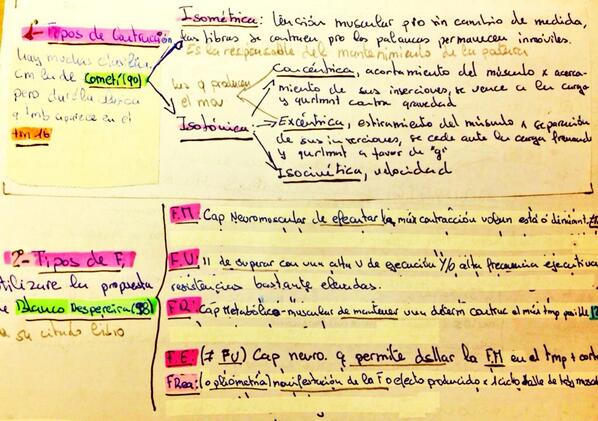 1º- Tipos de Contracción
hay muchas clasific.
con la de Cometti (90)
pero daré la clásica
q tmb aparece en el
tm 16
Isométrica: tensión muscular pro sin cambio de medida,
las fibras se contraen, pro las palancas permanecen inmóviles.
Es la responsable del mantenimiento de la postura
los q producen
el mov
Isotónica:
Concéntrica, acortamiento del músculo x acerca-
miento de sus inserciones, se vence a la carga
y gnrlmnt contra gravedad
Excéntrica, estiramiento del músculo x separación
de sus inserciones, se cede ante la carga frenando
y gnrlmnt a favor de "g"
Isocinética, velocidad
2º- Tipos de F,
utilizare la propuesta
Blanco Despereira (98)
su citado libro
F.M: Cap Neuromuscular de efectuar la máx contracción volun está o dinámt.
F.V: 11 de superar con una alta v de ejecución y/o alta frecuencia ejecutiva
resistencias bastante elevadas.
F.R: Cap Metabólico-muscular de mantener una determ contrac el máx tmp posible
F.E: (≠ FV) Cap neuro. q permite dsllar la F.M en el tmp + corto
F.Rea: (o pliométrica) manifestación de la F o efecto producido x 1 ciclo